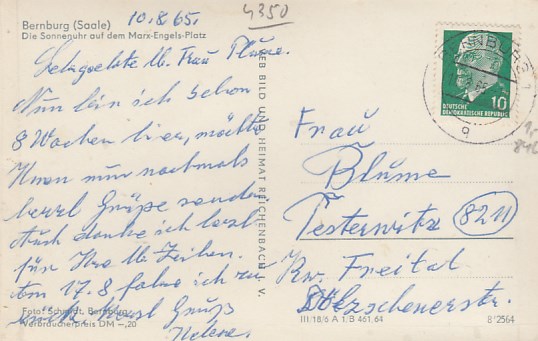 Bernburg (Saale)
Die Sonnenuhr auf dem Marx-Engels-Platz
10.8.65.
4350
lb. Frau Blume.
Nun bin ich schon
8 Wochen hier, möchte
Ihnen nun nochmals
herzl. Grüße senden
Auch danke ich herzl.
für Ihre lb. Zeilen.
am 17.8 fahre ich
Gruß
Helene.
Foto: Schmidt, Bernburg
Verbraucherpreis DM –,20
BILD UND HEIMAT REICHENBACH I. V.
DEUTSCHE
DEMOKRATISCHE REPUBLIK
10
Frau
Blume
Pesterwitz 8211
Kr. Freital
Dölzschenerstr.
III/18/6 A 1/B 461.64
8/2564